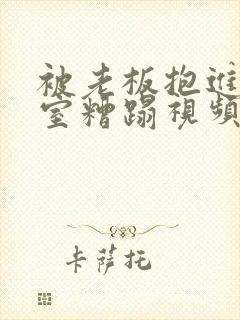 被老板抱进
室糟蹋视频
卡萨托